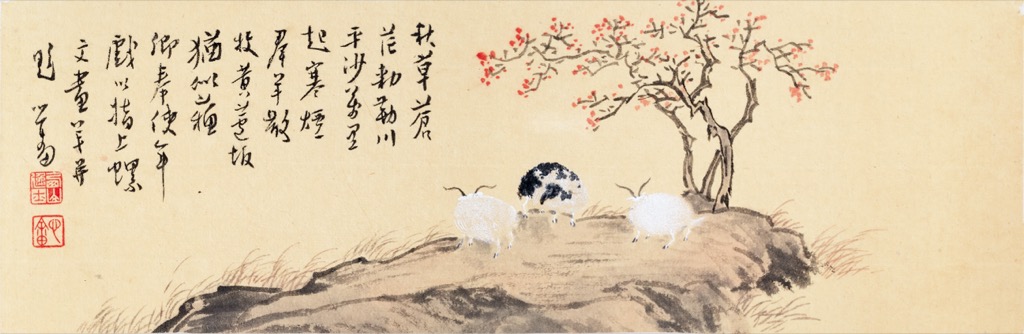 秋草蒼
茫勅勒川
平沙萬里
起寒煙
羣羊散
牧黄蘆坂
猶似蘇
卿奉使年
戲以指上螺
文畫羊并
題 心畬